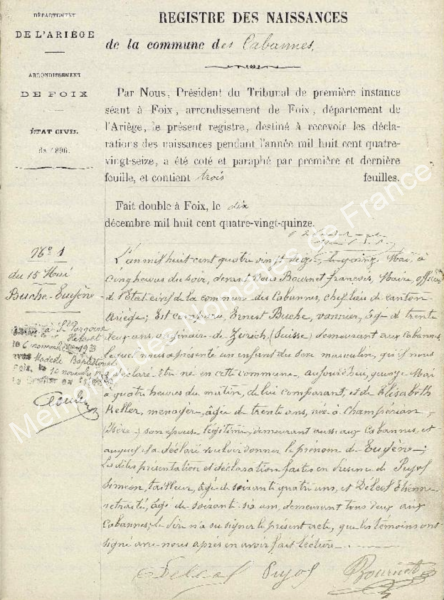 DÉPARTEMENT
DE L'ARIÈGE
ARRONDISSEMENT
DE FOIX
ÉTAT CIVIL
de 1896.
REGISTRE DES NAISSANCES
de la commune des Cabannes.
Par Nous, Président du Tribunal de première instance
séant à Foix, arrondissement de Foix, département de
l'Ariège, le présent registre, destiné à recevoir les décla-
rations des naissances pendant l'année mil huit cent quatre-
vingt-seize, a été coté et paraphé par première et dernière
feuille, et contient trois feuilles.
Fait double à Foix, le dix
décembre mil huit cent quatre-vingt-quinze.
N° 1
du 15 Mai
Buche Eugène
L'an mil huit cent quatre vingt seize, le quinze Mai, à
cinq heures du soir, devant nous Bournet françois, Maire officier
de l'état civil de la commune des Cabannes, chef lieu de canton
Ariège; est comparu Ernest Buche, vannier, âgé de trente
neuf ans, originaire de Zurich (Suisse) demeurant aux Cabannes
lequel nous a présenté un enfant du sexe masculin, qu'il nous
a déclaré être né en cette commune aujourd'hui, quinze Mai
à quatre heures du matin, de lui comparant, et de Elisabeth
Keller, ménagère, âgée de trente ans, née à
son épouse légitime, demeurant aussi aux Cabannes et
auquel il a déclaré vouloir donner le prénom de Eugène;
les dites présentation et déclaration faites en présence de Pujol
Siméon, tailleur, âgé de soixante quatre ans, et Delcat Etienne
retraité, âgé de soixante six ans, demeurant tous deux aux
Cabannes; le père n'a su signer le présent acte, que les témoins ont
signé avec nous après en avoir fait lecture.
Pujol
Memorial GenWeb Memoires de France